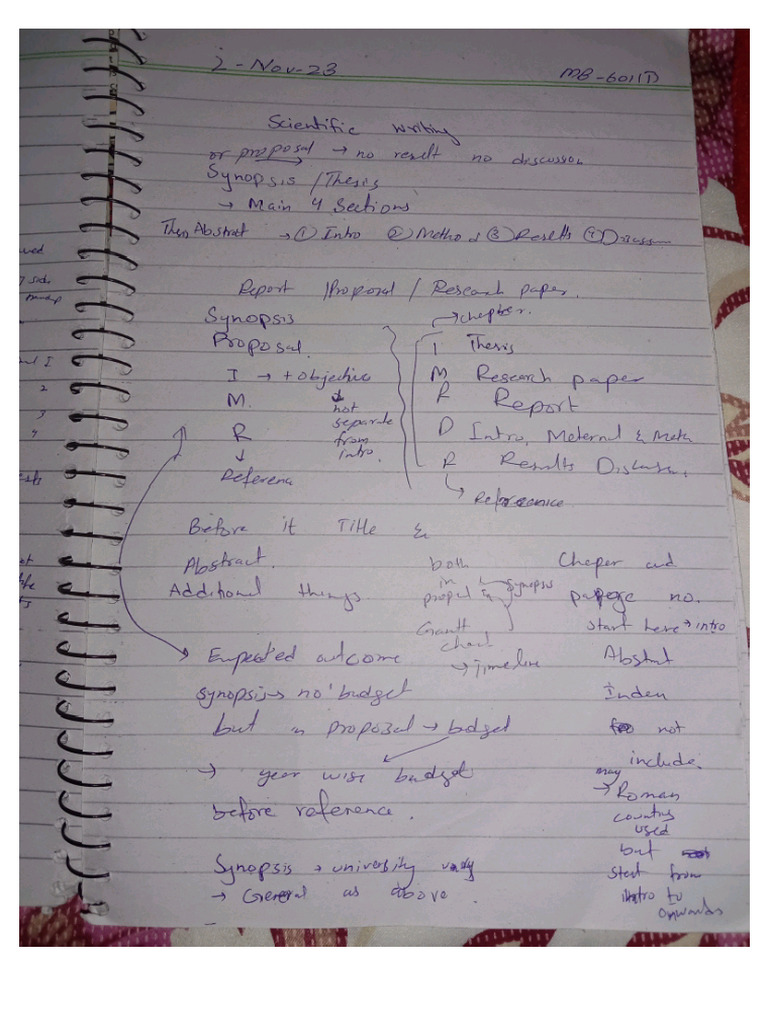 2-Nov-23 MB-6011D
Scientific writing
or proposal → no result no discusson
Synopsis / Thesis
→ Main 4 Sections
Thesis Abstract → ① Intro ② Method ③ Results ④ Discussion
Report / Proposal / Research paper.
Synopsis
Proposal.
I → + Objectives
M. ↓ not
R separate
↓ from
Referenc intro.
→ chepter.
I Thesis
M Research paper
R Report
D Intro, Meternal & Meth
R Results Discussion,
→ Reference
Before it Title &
Abstract.
Additional things.
both
in
proposal & synopsis
Grantt
chart
→ timeline
→ Expected outcome
Synopsis → no budget
but in proposal → bdget
→ year wise budget
before reference.
Synopsis → university vary
→ General as above.
Cheper and
page no.
start here → intro
Abstrat
Index
not
include.
may
→ Roman
counting
used
but
start from
intro to
onwards